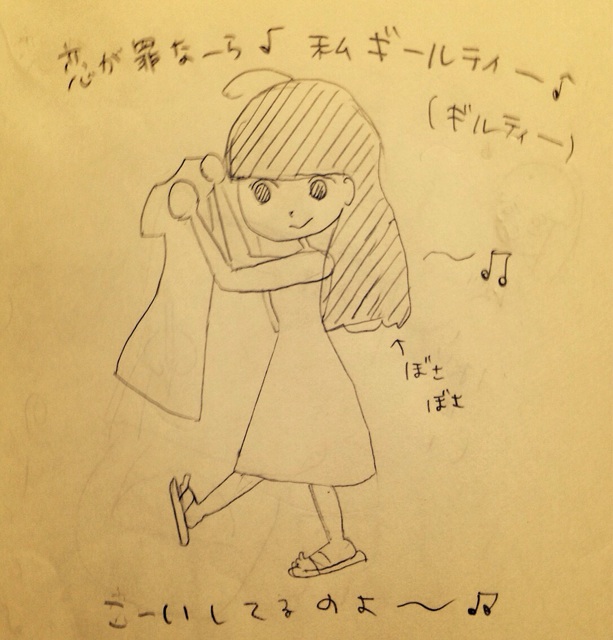 恋が罪なーら♪ 私ギールティー♪
(ギルティー)
〜♫
↑
ぼさ
ぼさ
こーいしてるのよ〜♫